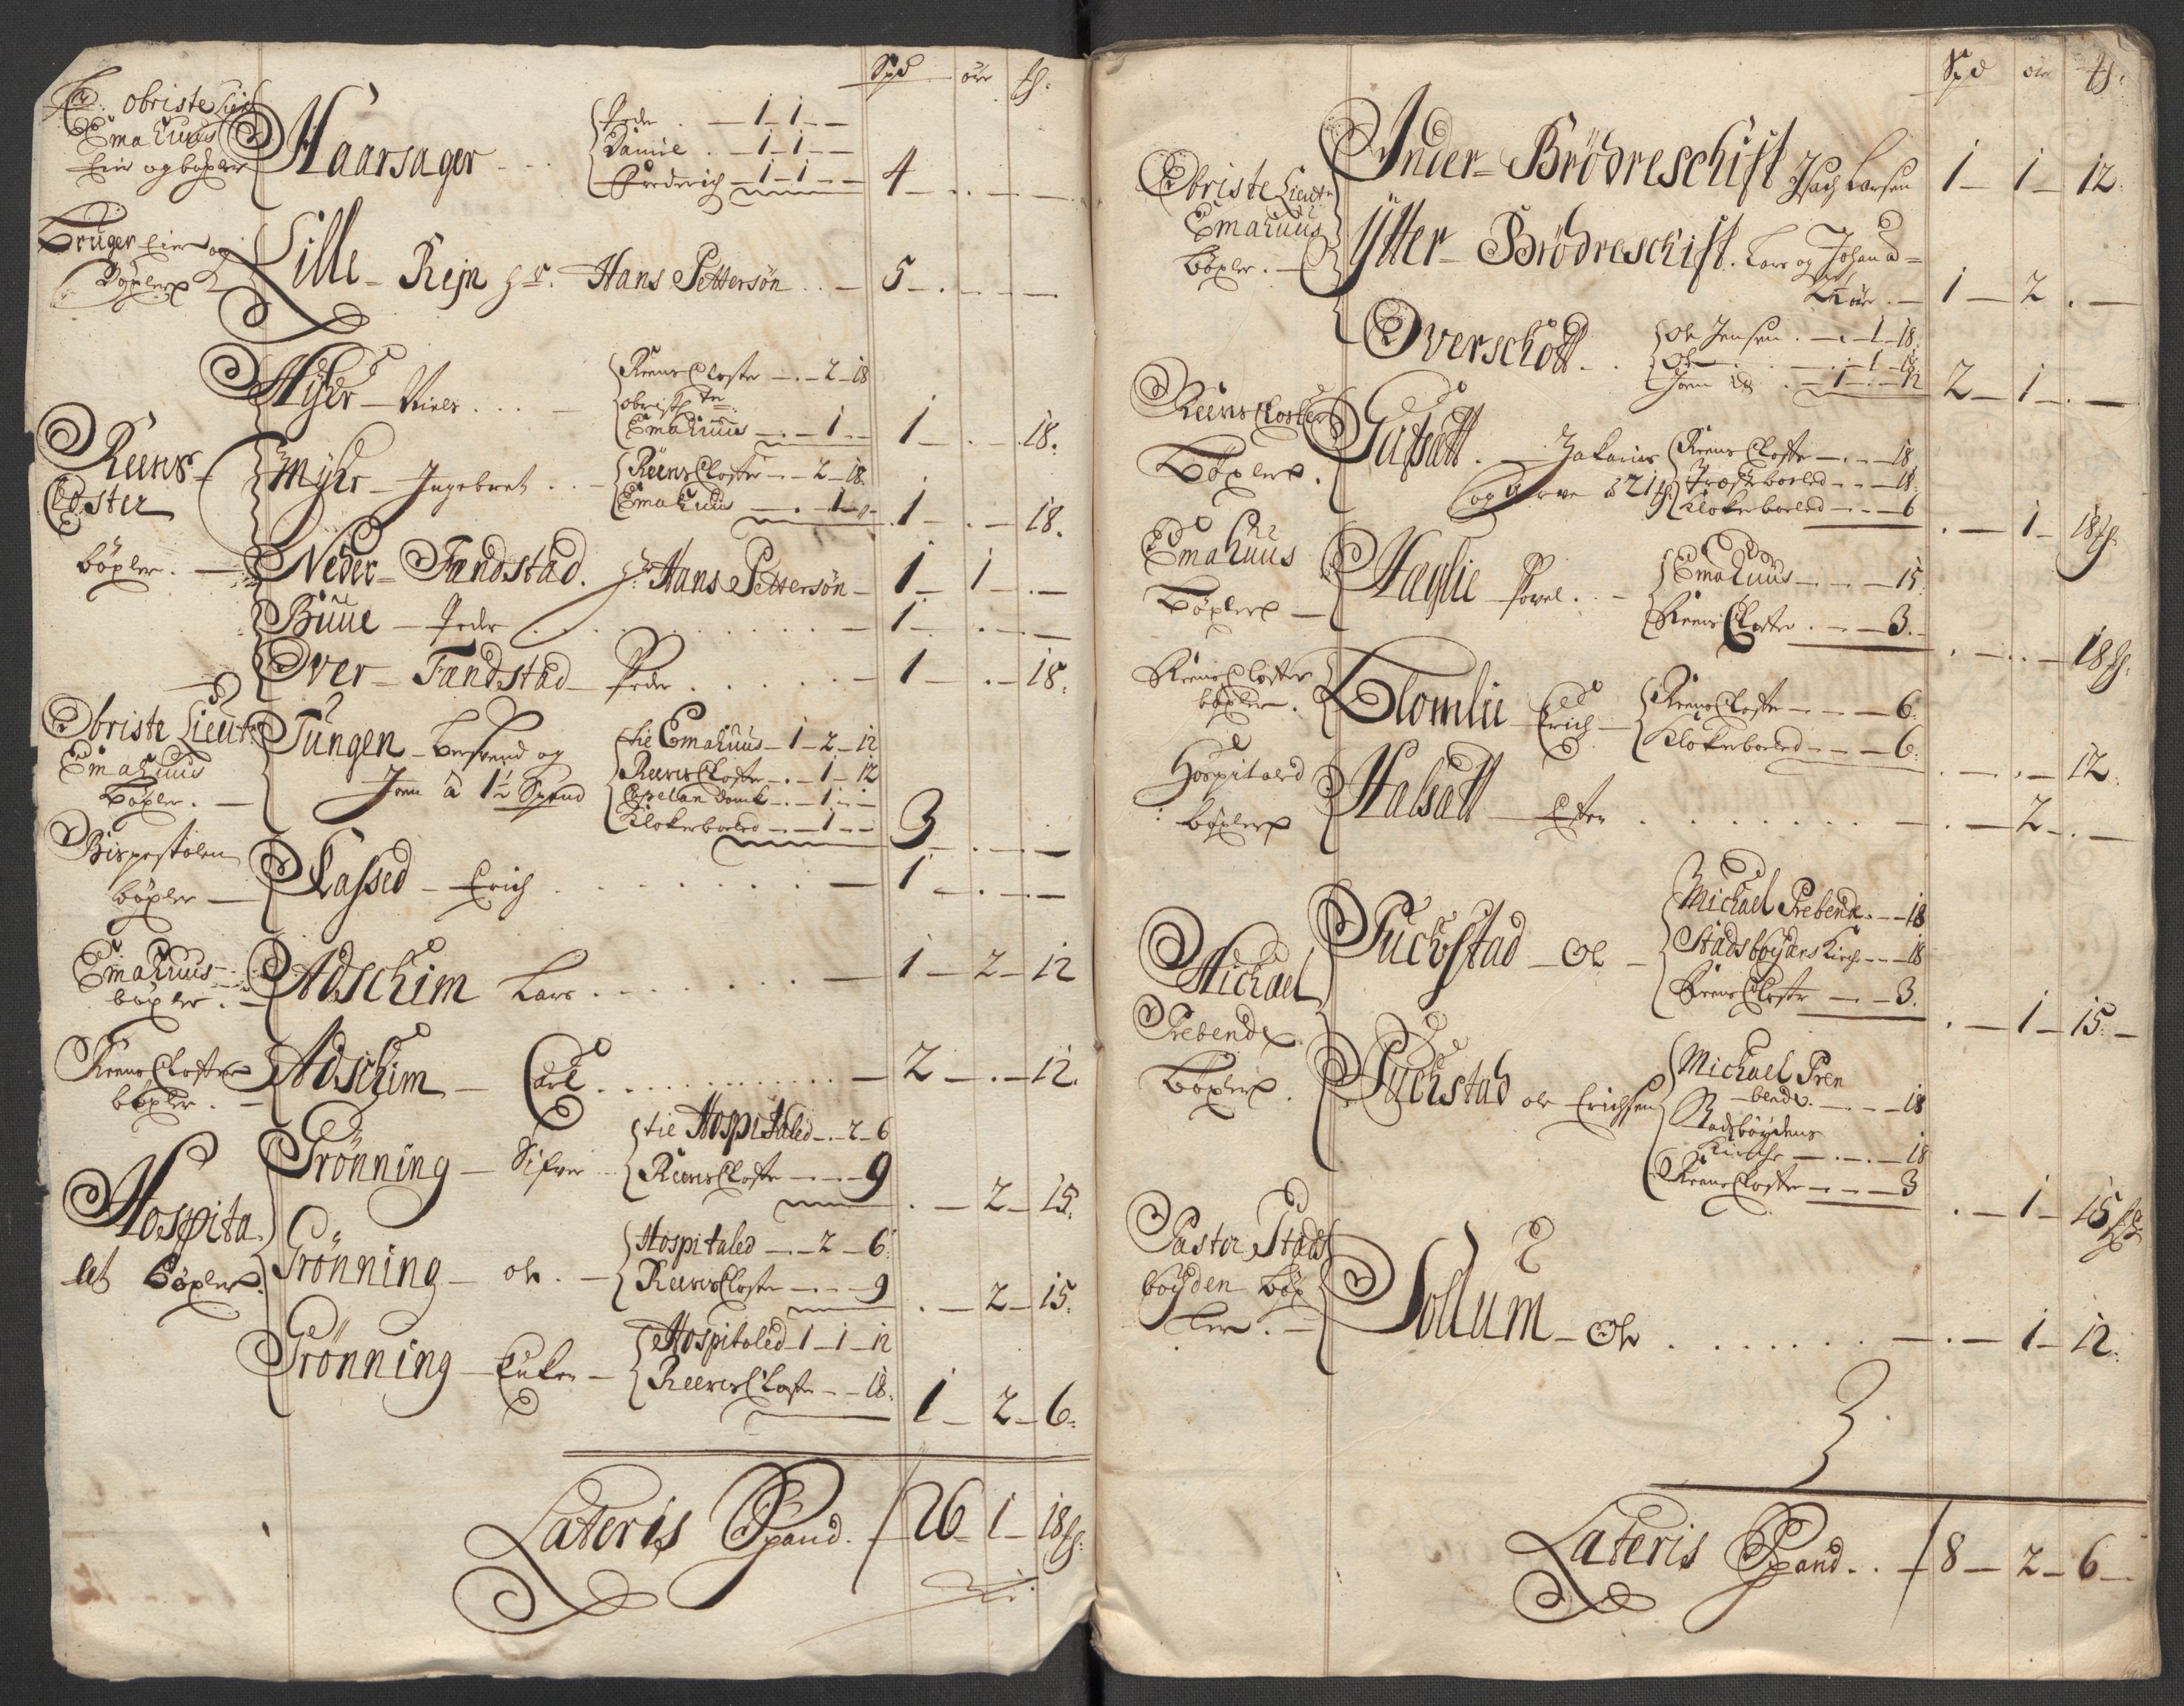 Spd øre
Obriste Lieut
Emahuus
Eier og böxler
Haarsager
Peder . — 1 — 1 —
Daniel . — 1 — 1 —
Frederich — 1 — 1 —
4 — . — . —
Kruger Eier og
Böxler
Lille — Rejn Hr. Hans Pettersøn . . — 5 — . — . —
Myhr — Niels . . . —
Reens Closter — . — 2 — 18
obriste
Emahuus — . — 1 —
1 — . — 18.
Reens
Closter
böxler . —
Myhr — Ingebret . . —
Reens Closter — — 2 — 18
Emahuus — . — 1 —
1 — . — 18.
Neder — Fandstad. Hr. Hans Pettersøn — 1 — 1 — . —
Buue — Peder . . . . . . — 1 — . — . —
Over — Fandstad — Peder . . . . . — 1 — . — 18.
Obriste Lieut:
Emahuus
böxler . —
Tungen — Bersvend og
Joen à 1½ Spand
til Emahuus — 1 — 2 — 12
Reens Closter — . — 1 — 12
Capelan — . — 1 — . —
Klokerboeled — — 1 — —
3 — . — . —
Bispestolen
böxler —
Lassed — Erich . . . . . . — 1 — . — . —
Emahuus
böxler . —
Adschim Lars . . . . . . — 1 — 2 — 12
Reens Closter
böxler . —
Adschim — Carl . . . . . . . . — 2 — . — 12.
Hospita
let böxler.
Grönning — Sifver
til Hospitaled — . — 2 — 6
Reens Closter — — — 9
. — 2 — 15.
Grönning — ole . —
Hospitaled — . — 2 — 6
Reens Closter — — — 9
. — 2 — 15.
Grönning — Enken —
Hospitaled 1 — 1 — 12
Reens Closter — — 18.
1 — 2 — 6.
Lateris Spand . 26 — 1 — 18
Spd øre
Obriste Lieut
Emahuus
Böxler . —
Inder — Brödreschift Isach Larsen 1 — 1 — 12.
Ytter — Brödreschift. Lars og Johan à
1 — 2 . —
Overschott . .
Ole Jensen . — . — 1 — 18.
Ole . — 1 — 18
Joen . — 1 — 12
2 — 1 — . —
Reens Closter
Böxler .
Zakarias
Reens Closter — . — 18
— — 18.
Klokerboeled — — 6
. — 1 — 18
Emahuus
Böxler —
Haglie — Povel . —
Emahuus — . — — 15
Reens Closter . — — 3.
. — . — 18
Reens Closter
böxler .
Blomlie Erich —
Reens Closter — — — 6.
Klokerboeled — — — 6.
. — . — 12.
Hospitaled
böxler
Halsatt — Peter . . . . . . . — . — 2 — . —
Michael
Prebende
Böxler .
Puchstad — Ole —
Michael Prebende . — — 18
Stadsboydens Kirche — — 18
Reens Closter — — 3.
. — 1 — 15. —
Puchstad ole Erichsen
Michael Pren
bende . — . — — 18
Stadsböydens
Kirche — . — . — 18
Reens Closter — — — 3
. — 1 — 15
Pastor Stads
boyden böx
ler . —
Sollum — Ole . . . . . . — . — 1 — 12.
Lateris Spand . . 8 — 2 — 6 —